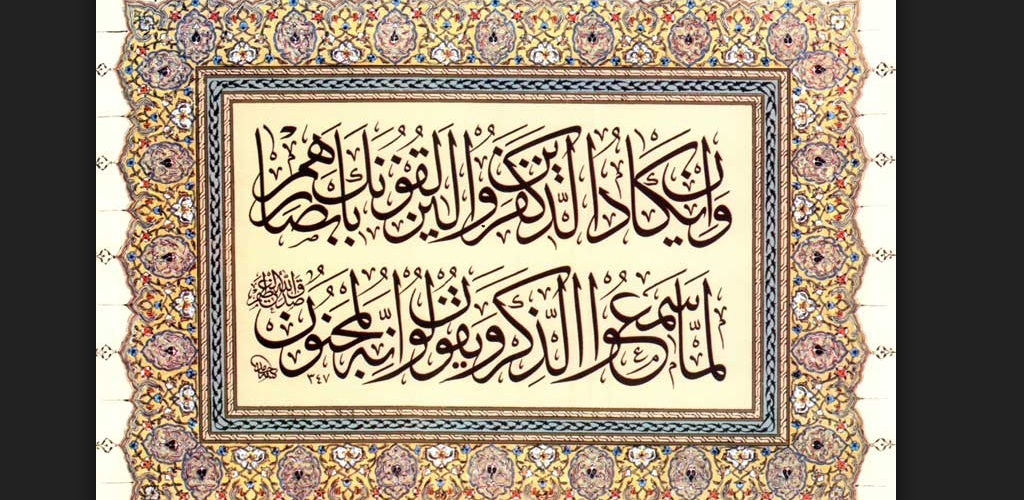 وَاِنْ يَكَادُ الَّذٖينَ كَفَرُوا لَيُزْلِقُونَكَ بِاَبْصَارِهِمْ
لَمَّا سَمِعُوا الذِّكْرَ وَيَقُولُونَ اِنَّهُ لَمَجْنُونٌ
صدق الله العظيم